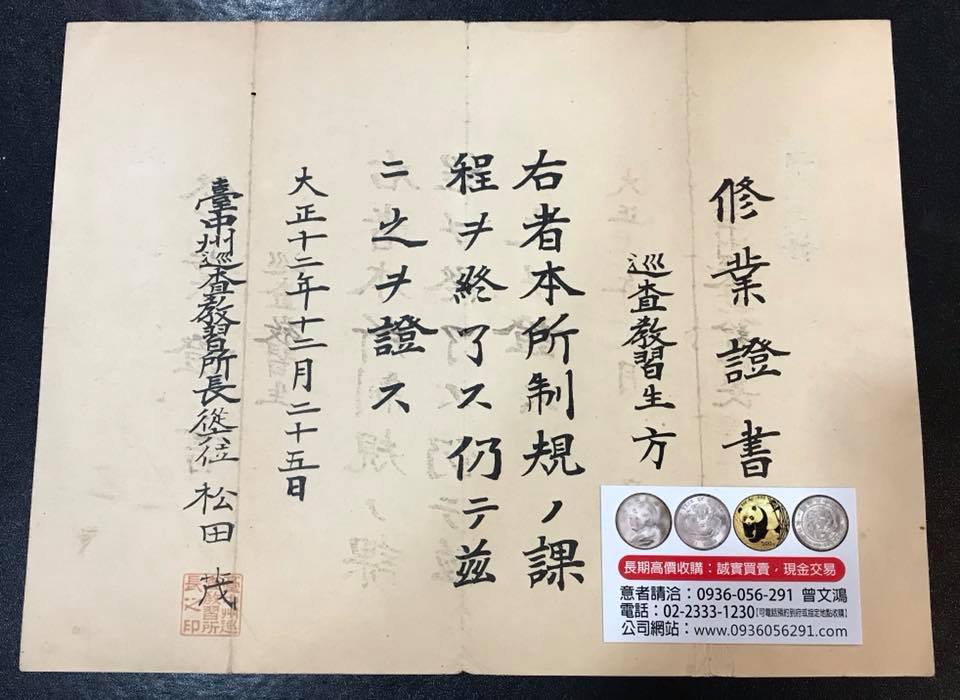 修業證書
巡査教習生 方
右者本所制規ノ課
程ヲ終了ス仍テ茲
ニ之ヲ證ス
大正十二年十二月二十五日
臺中州巡査教習所長從六位 松田 茂
長期高價收購：誠實買賣，現金交易
意者請洽：0936-056-291 曾文鴻
電話：02-2333-1230【可電話預約到府或指定地點收購】
公司網站：www.0936056291.com